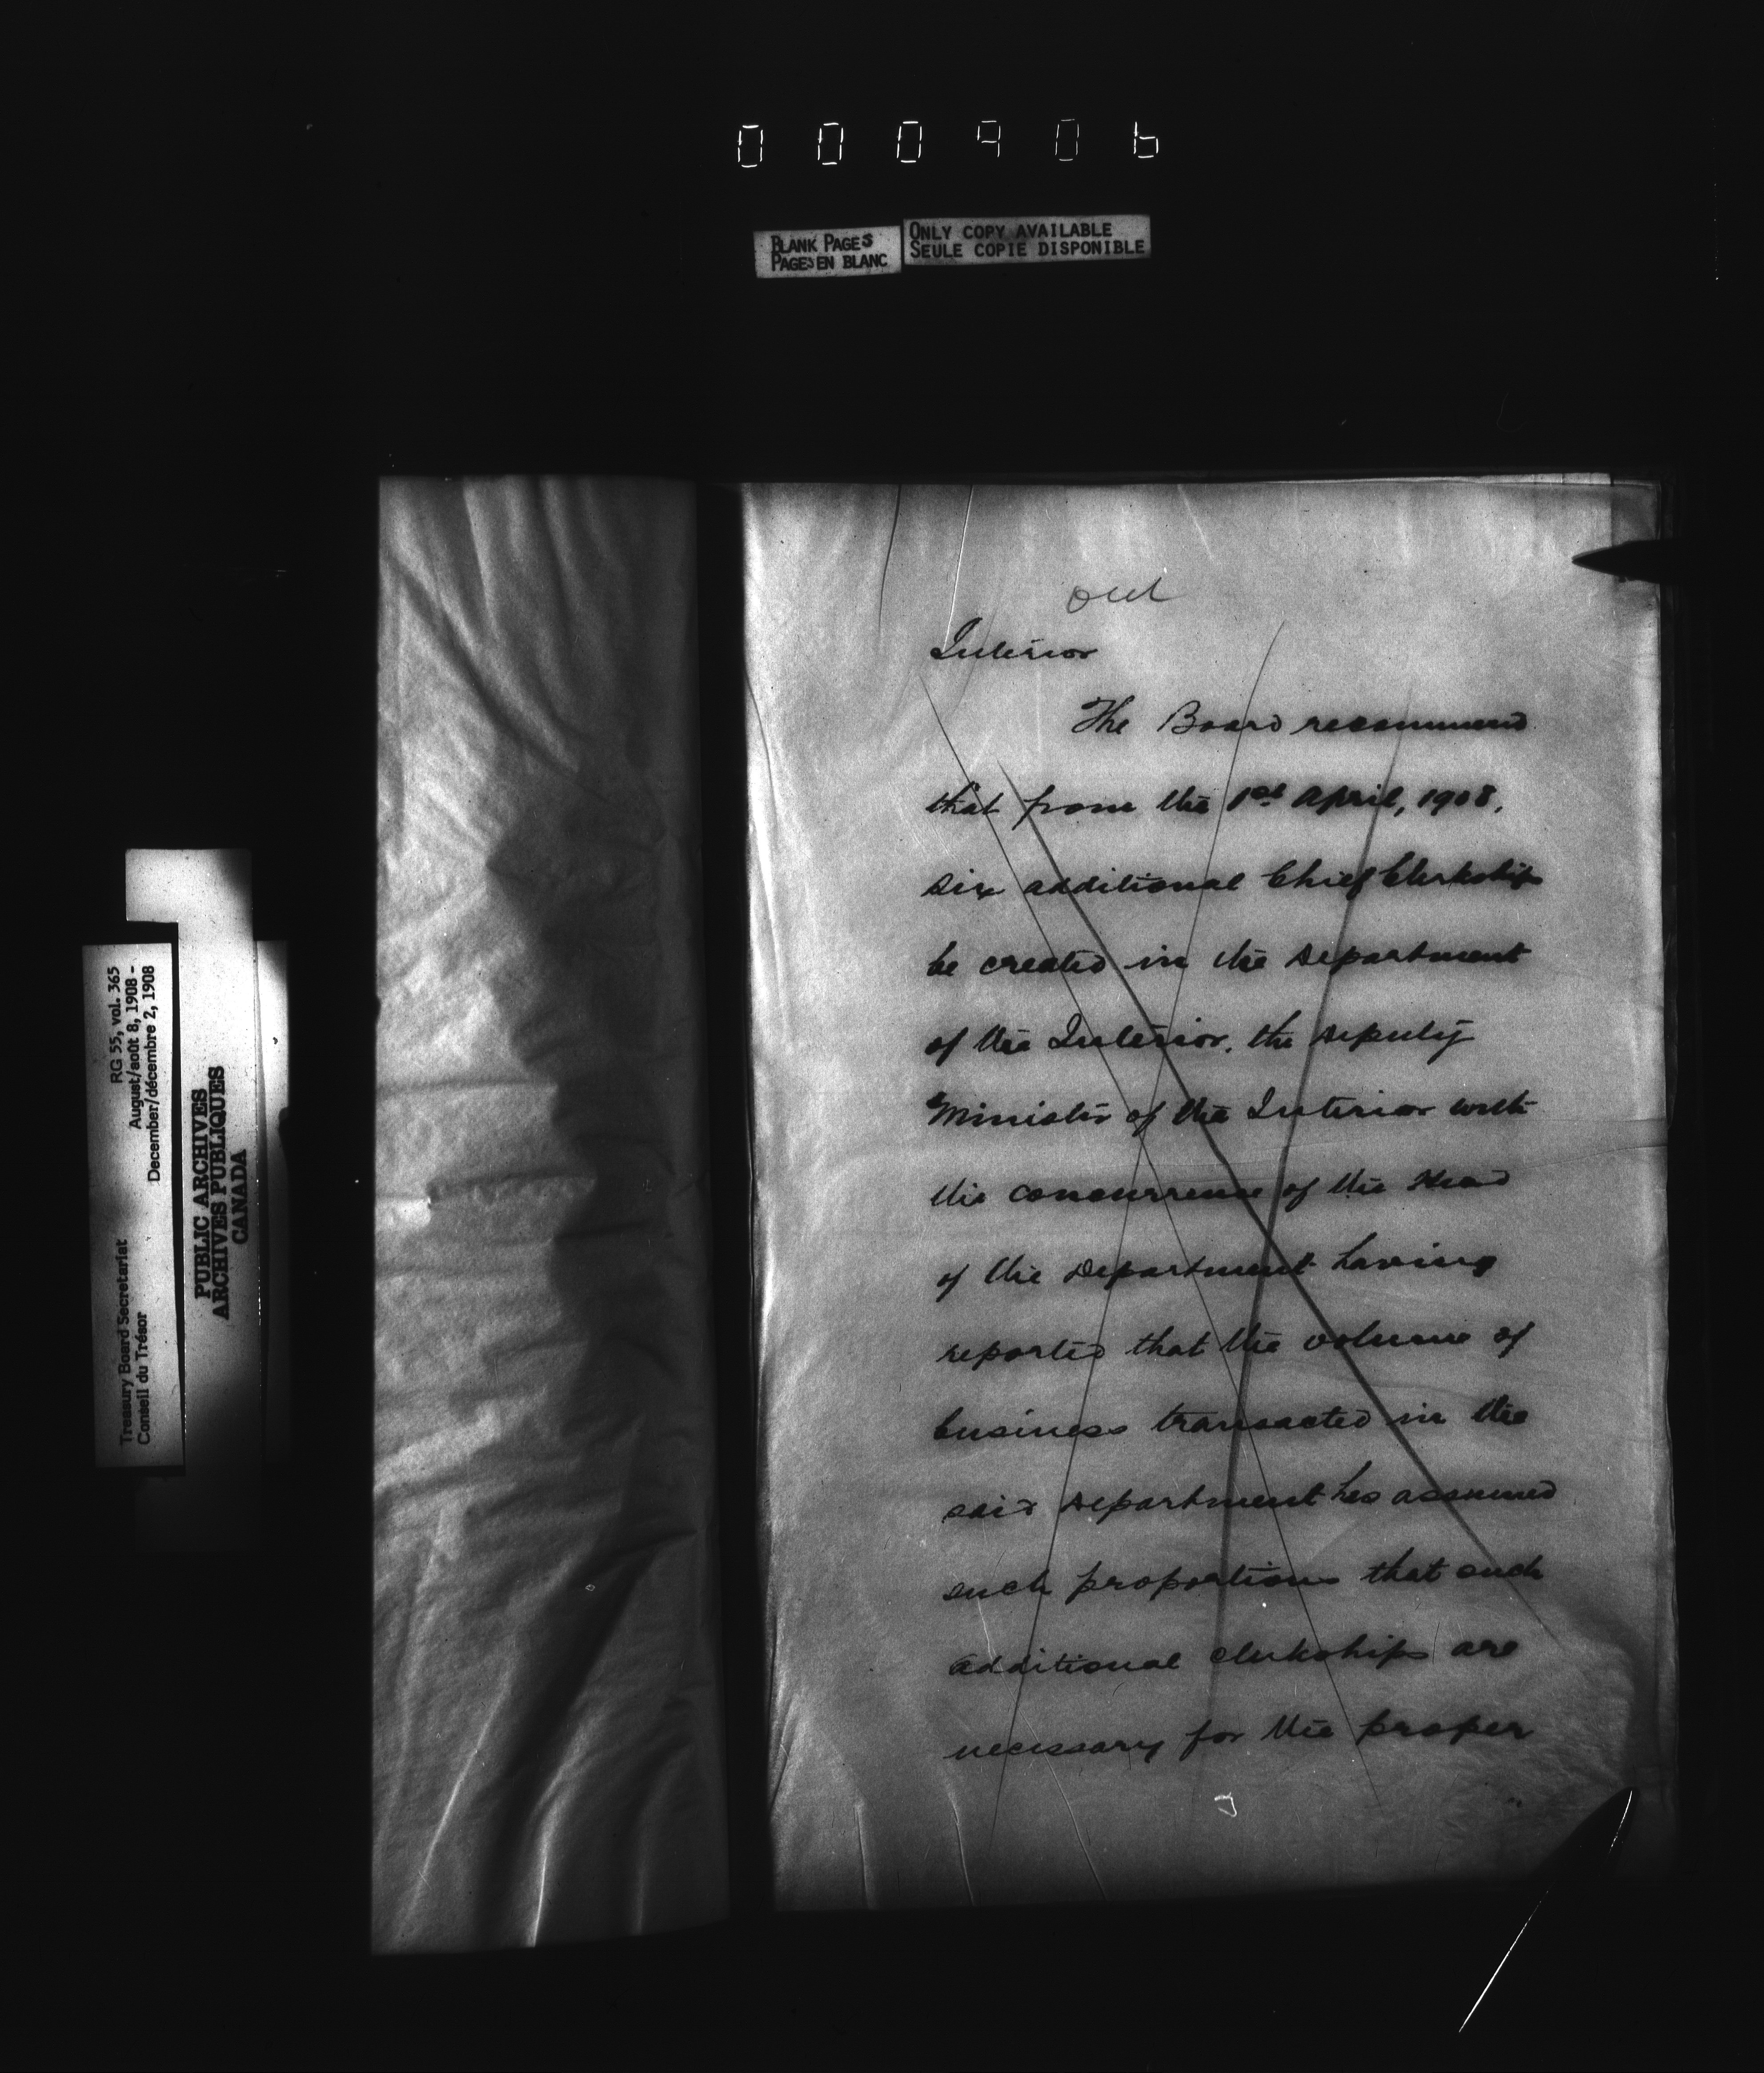 000906
BLANK PAGES
PAGES EN BLANC
ONLY COPY AVAILABLE
SEULE COPIE DISPONIBLE
RG 55, vol. 365
August/août 8, 1908 -
December/décembre 2, 1908
Treasury Board Secretariat
Conseil du Trésor
PUBLIC ARCHIVES
ARCHIVES PUBLIQUES
CANADA
out
Interior
The Board recommend
that from the 1st April, 1908,
six additional Chief Clerkships
be created in the Department
of the Interior, the Deputy
Minister of the Interior with
the concurrence of the Head
of the Department having
reported that the volume of
business transacted in the
said Department has assumed
such proportions that such
additional clerkships are
necessary for the proper